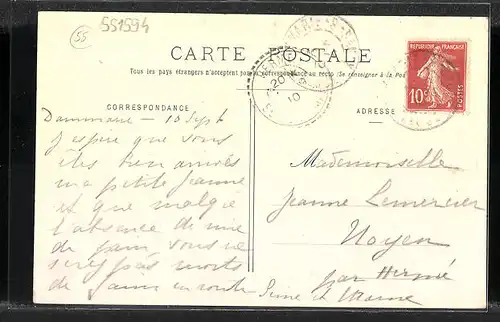 551594
55
CARTE POSTALE
Tous les pays étrangers n'acceptent pas la correspondance au recto (Se renseigner à la Poste
CORRESPONDANCE
ADRESSE
REPUBLIQUE FRANÇAISE
10c
POSTES
20
10
Dammarie — 10 Sept
J'espère que vous
êtes bien arrivés
ma petite Jeanne
et que malgré
l'absence de
de pain vous ne
serez pas morts
de faim en route
Mademoiselle
Jeanne Lemercier
Noyen
par Hermé
Seine et Marne